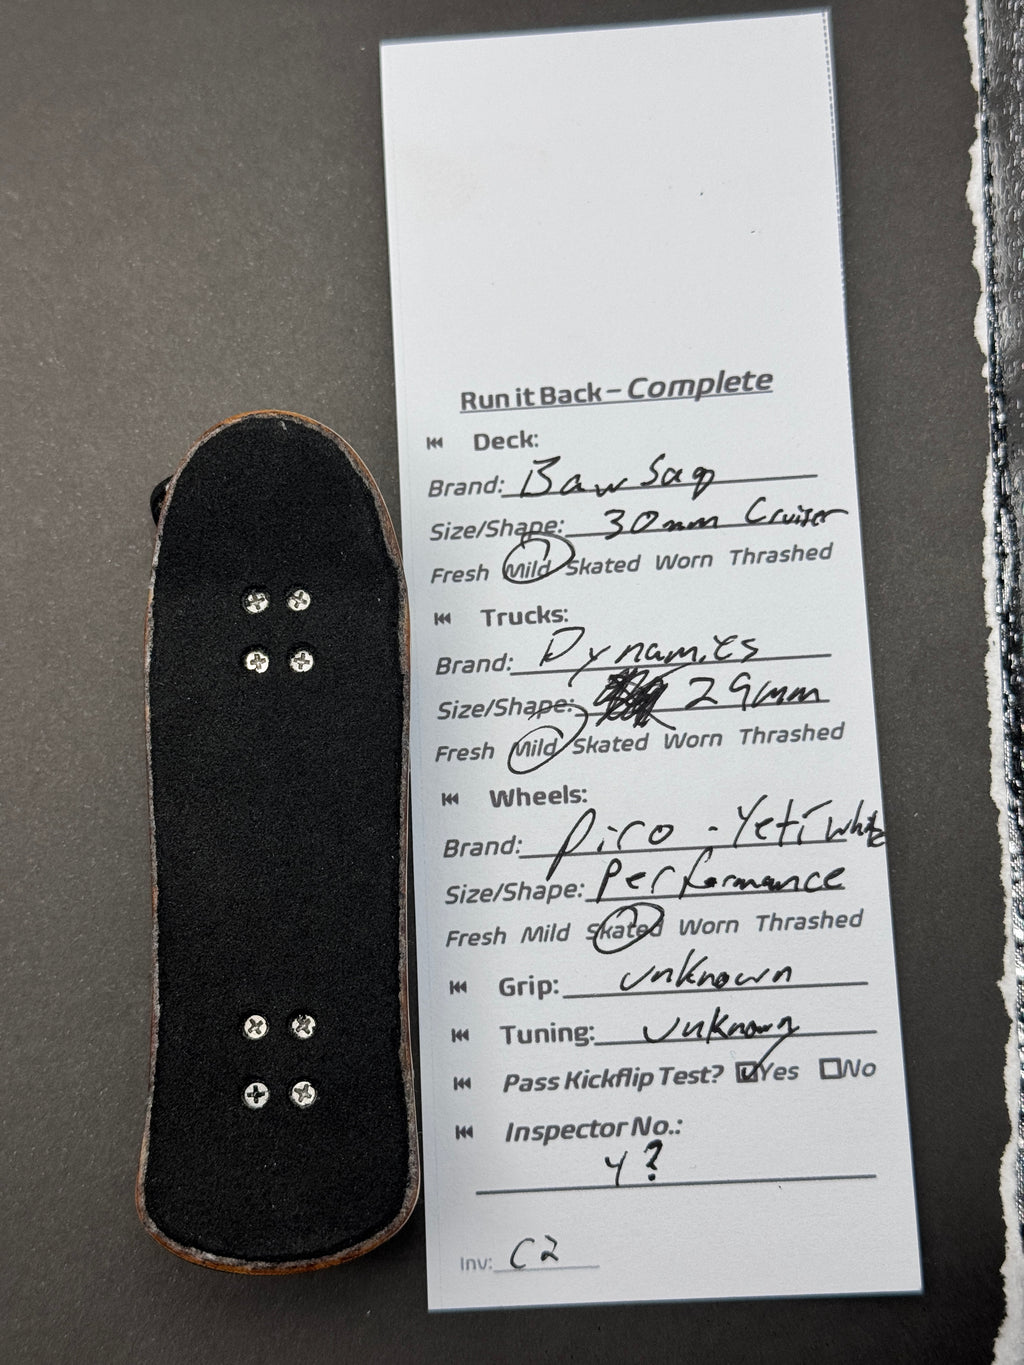 Run it Back – Complete
Deck:
Brand: Bawsaq
Size/Shape: 30mm Cruiser
Fresh Mild Skated Worn Thrashed
Trucks:
Brand: Dynamics
Size/Shape: 29mm
Fresh Mild Skated Worn Thrashed
Wheels:
Brand: Piro - Yeti White
Size/Shape: Performance
Fresh Mild Skated Worn Thrashed
Grip: Unknown
Tuning: Unknown
Pass Kickflip Test? Yes No
Inspector No.:
4?
Inv: C2